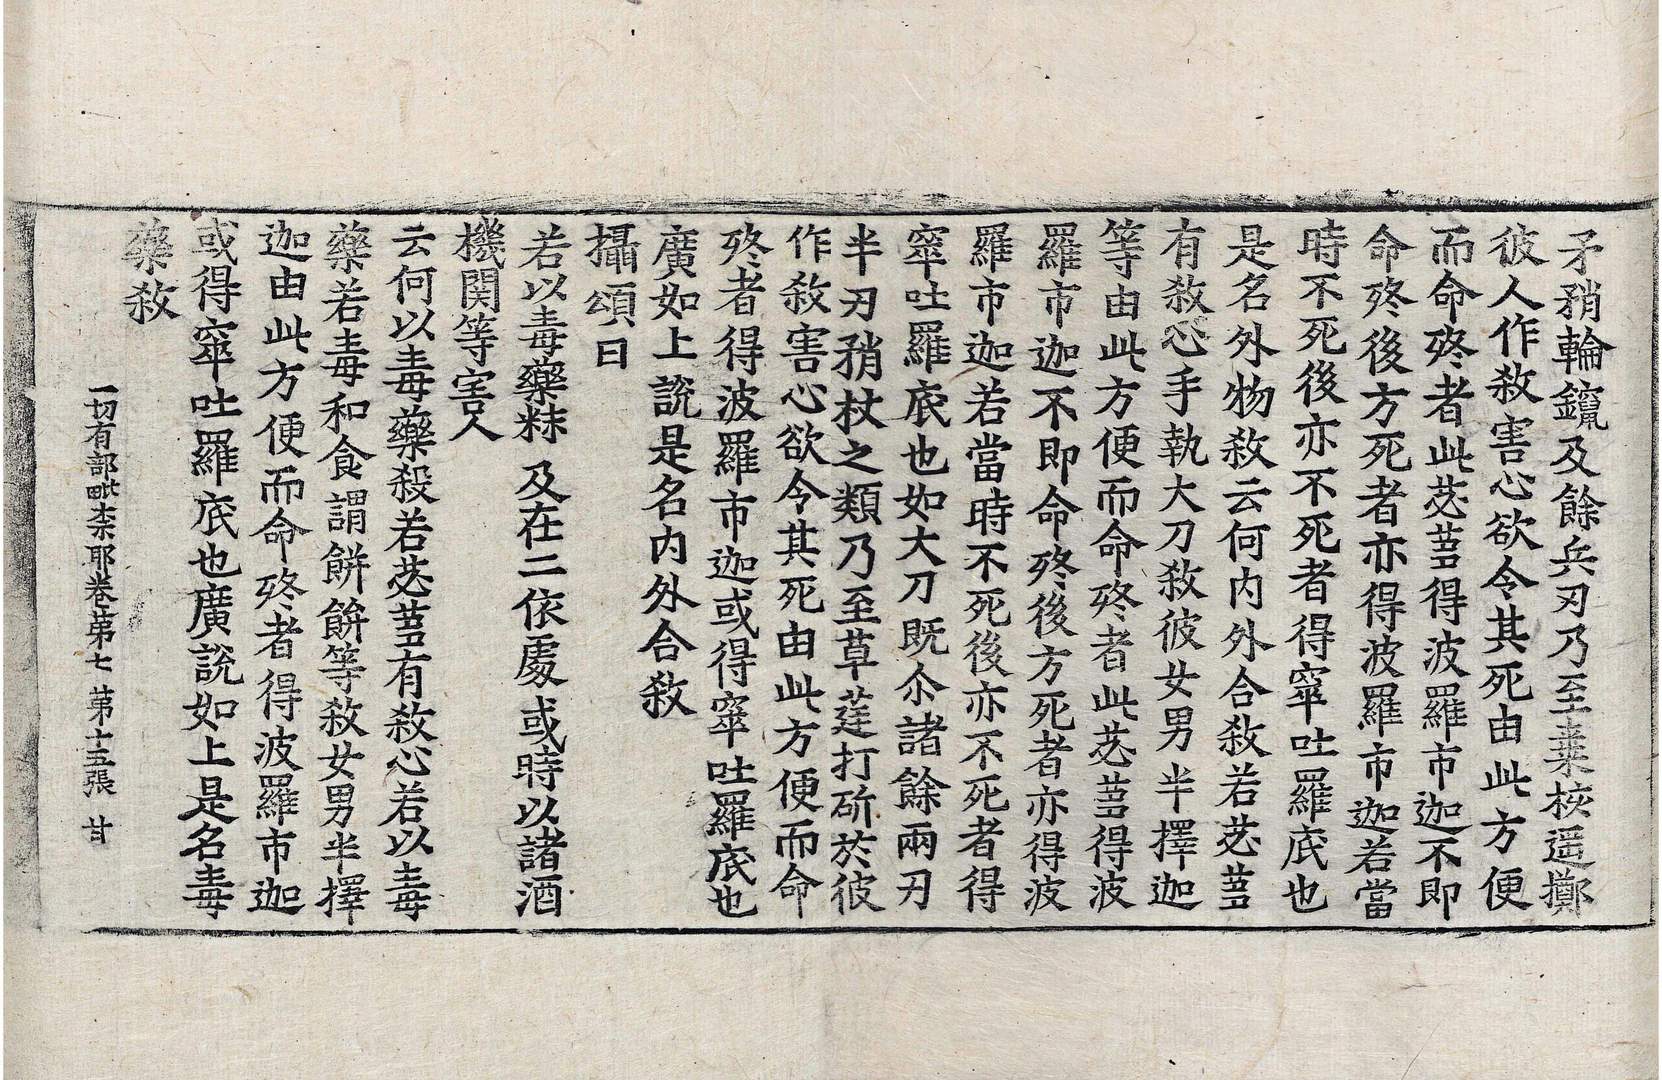 矛矟輪鑹及餘兵刃乃至棗核遥擲
彼人作敎害心欲令其死由此方便
而命終者此苾蒭得波羅市迦不即
命終後方死者亦得波羅市迦若當
時不死後亦不死者得窣吐羅底也
是名外物敎云何内外合敎若苾蒭
有敎心手執大刀敎彼女男半擇迦
等由此方便而命終者此苾蒭得波
羅市迦不即命終後方死者亦得波
羅市迦若當時不死後亦不死者得
窣吐羅底也如大刀既尒諸餘兩刃
半刃矟杖之類乃至草莛打斫於彼
作敎害心欲令其死由此方便而命
終者得波羅市迦或得窣吐羅底也
廣如上說是名内外合敎
攝頌曰
若以毒藥粖 及在二依處 或時以諸酒
機関等害人
云何以毒藥殺若苾蒭有敎心若以毒
藥若毒和食謂餅餅等敎女男半擇
迦由此方便而命終者得波羅市迦
或得窣吐羅底也廣說如上是名毒
藥敎
一切有部毗柰耶卷第七 第十五張 甘